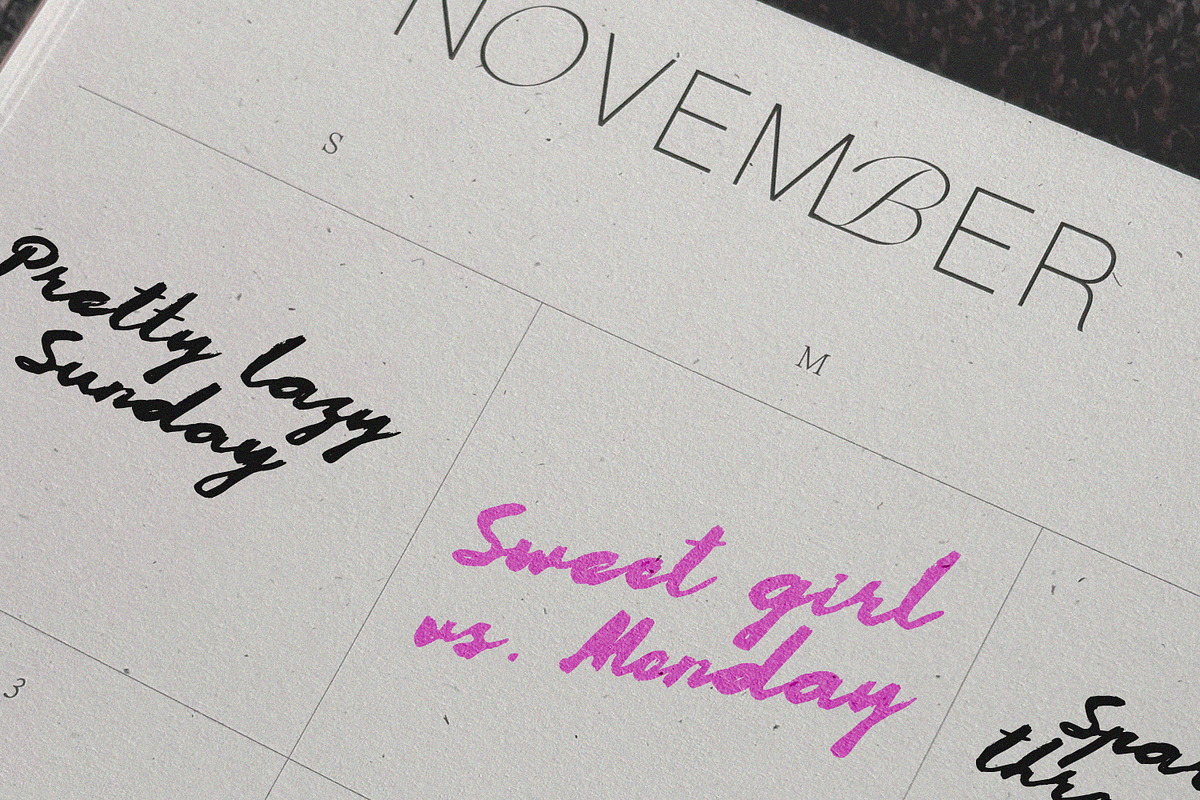 NOVEMBER
S
M
Pretty lazy
Sunday
Sweet girl
vs. Monday
3